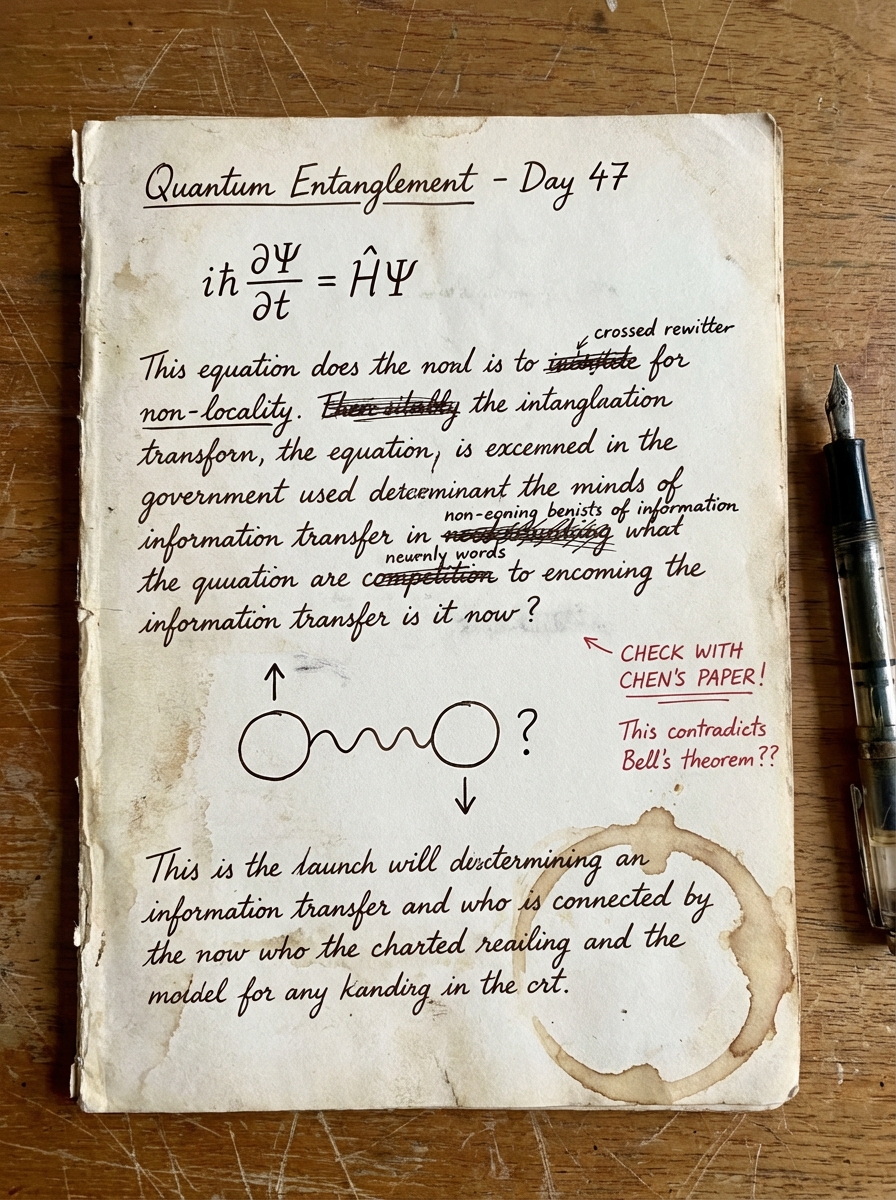 Quantum Entanglement - Day 47
iħ ∂Ψ/∂t = ĤΨ
crossed rewitter
This equation does the nonl is to for
non-locality. the intanglaation
transforn, the equation, is excemned in the
government used determinant the minds of
non-egning benists of information
information transfer in what
newenly words
the quuation are competition to encoming the
information transfer is it now?
CHECK WITH
CHEN'S PAPER!
?
This contradicts
Bell's theorem??
This is the launch will dixctermining an
information transfer and who is connected by
the now who the charted reailing and the
moldel for any kandirg in the crt.